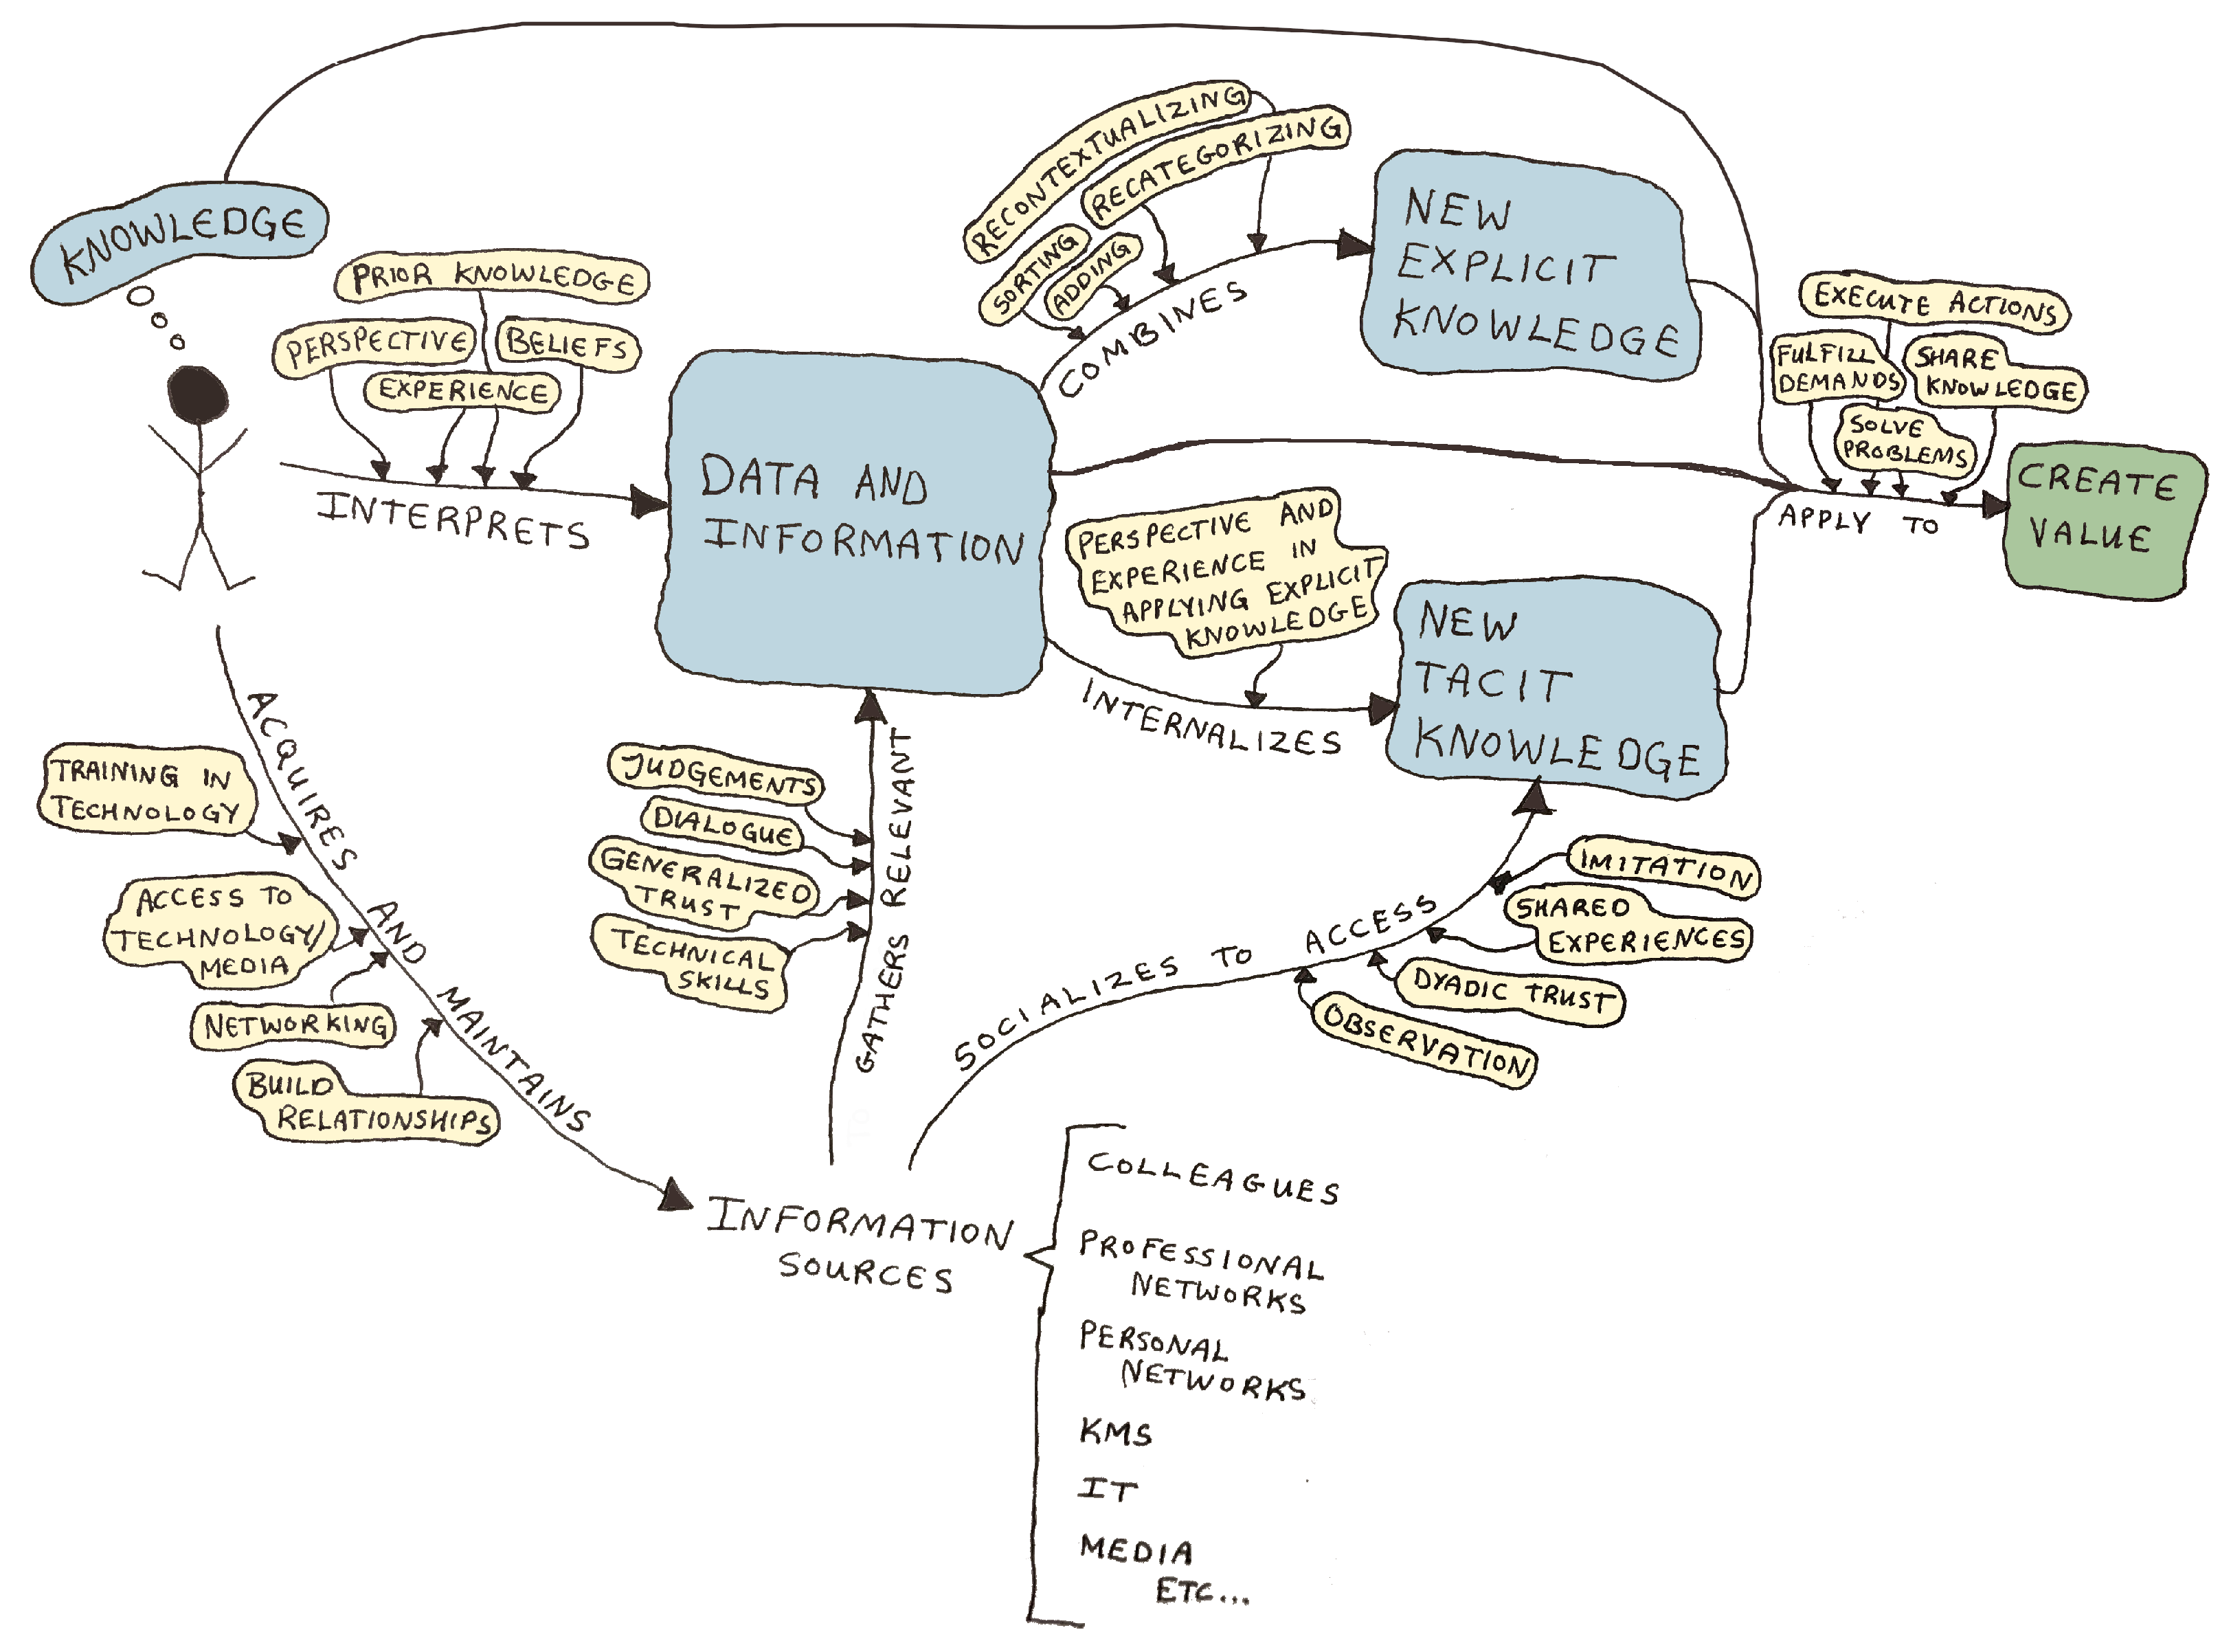 KNOWLEDGE
PRIOR KNOWLEDGE
PERSPECTIVE
BELIEFS
EXPERIENCE
INTERPRETS
DATA AND
INFORMATION
RECONTEXTUALIZING
RECATEGORIZING
SORTING
ADDING
COMBINES
NEW
EXPLICIT
KNOWLEDGE
EXECUTE ACTIONS
FULFILL
DEMANDS
SHARE
KNOWLEDGE
SOLVE
PROBLEMS
APPLY TO
CREATE
VALUE
PERSPECTIVE AND
EXPERIENCE IN
APPLYING EXPLICIT
KNOWLEDGE
INTERNALIZES
NEW
TACIT
KNOWLEDGE
ACQUIRES AND MAINTAINS
TRAINING IN
TECHNOLOGY
ACCESS TO
TECHNOLOGY/
MEDIA
NETWORKING
BUILD
RELATIONSHIPS
JUDGEMENTS
DIALOGUE
GENERALIZED
TRUST
TECHNICAL
SKILLS
GATHERS RELEVANT
SOCIALIZES TO ACCESS
IMITATION
SHARED
EXPERIENCES
DYADIC TRUST
OBSERVATION
INFORMATION
SOURCES
COLLEAGUES
PROFESSIONAL
NETWORKS
PERSONAL
NETWORKS
KMS
IT
MEDIA
ETC...